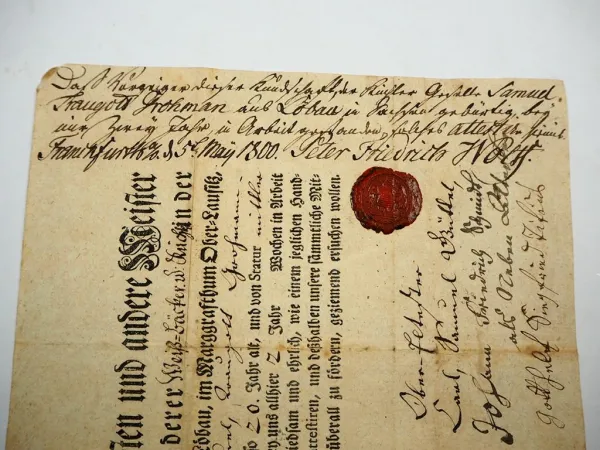 Daß Vorzeiger dieser Kundschaft der Küchler Geselle Samuel
Traugott Grohman aus Löbau in Sachsen gebürtig, bey
mir Zwey Jahr in Arbeit gestanden, solches attestire hiermit
Frankfurth d. 5t May 1800. Peter Friedrich Wolff.
en und andere Meister
derer Weiß-Bäcker u. Küchler in der
Löbau, im Marggrafthum Ober-Lausitz,
Grohmann
20. Jahr alt, und von Statur mittler
uns allhier 2 Jahr Wochen in Arbeit
iedsam und ehrlich, wie einem jeglichen Hand-
attestiren, und deßhalben unsere sämmtliche Mit-
überall zu fördern, geziemend ersuchen wollen.
Ober-Eltester
Carl Samuel
Johann Friedrich Schmidt
als Neben
Gotthelf Siegfried